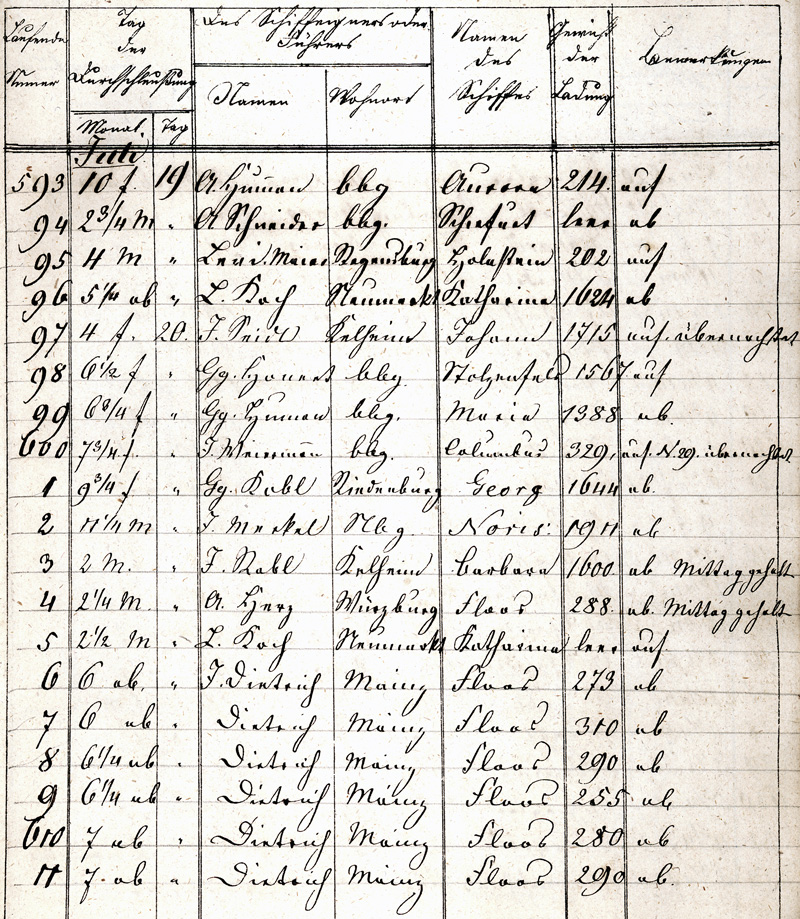 Laufende Numer | Tag der Durchschleußung | Des Schiffeigners oder Führers | Namen des Schiffes | Gewicht der Ladung | Bemerkungen
Monat. | Tag | Namen | Wohnort
Juli
593 | 10 f. | 19 | A. Humen | bbg | Aurora | 214. | auf
94 | 2 3/4 M | " | A Schneider | bbg. | Schiefurt | leer | ab
95 | 4 M | " | Levi. Meier | Regensburg | Holnstein | 202 | auf
96 | 5 1/4 ab | " | L. Koch | Neumarkt | Katharina | 1624 | ab
97 | 4 f. | 20. | J. Seidl | Kelheim | Johann | 1715 | auf. übernachtet
98 | 6 1/2 f | " | Gg. | bbg | Stolzenfels | 1567 | auf
99 | 6 3/4 f | " | Gg. Humen | bbg. | Maria | 1388 | ab.
600 | 7 3/4 f. | " | J. | bbg. | Columbus | 329, | auf. N. 29. übernachtet.
1 | 9 3/4 f | " | Gg. Kobl | Riedenburg | Georg | 1644 | ab.
2 | 11 1/4 M | " | J. Merkel | Nbg. | Noris. | 1911 | ab
3 | 2 M. | " | J. Rabl | Kelheim | Barbara | 1600 | ab Mittag gehalt
4 | 2 1/4 M. | " | A. Herz | Würzburg | Floos | 288. | ab. Mittag gehalt
5 | 2 1/2 M | " | L. Koch | Neumarkt | Katharina | leer | auf
6 | 6 ab. | " | J. Dietrich | Mainz | Floos | 273 | ab
7 | 6 ab | " | Dietrich | Mainz | Floos | 310 | ab
8 | 6 1/4 ab | " | Dietrich | Mainz | Floos | 290 | ab
9 | 6 1/4 ab | " | Dietrich | Mainz | Floos | 255 | ab,
610 | 7 ab | " | Dietrich | Mainz | Floos | 280 | ab
11 | 7. ab | " | Dietrich | Mainz | Floos | 290 | ab.